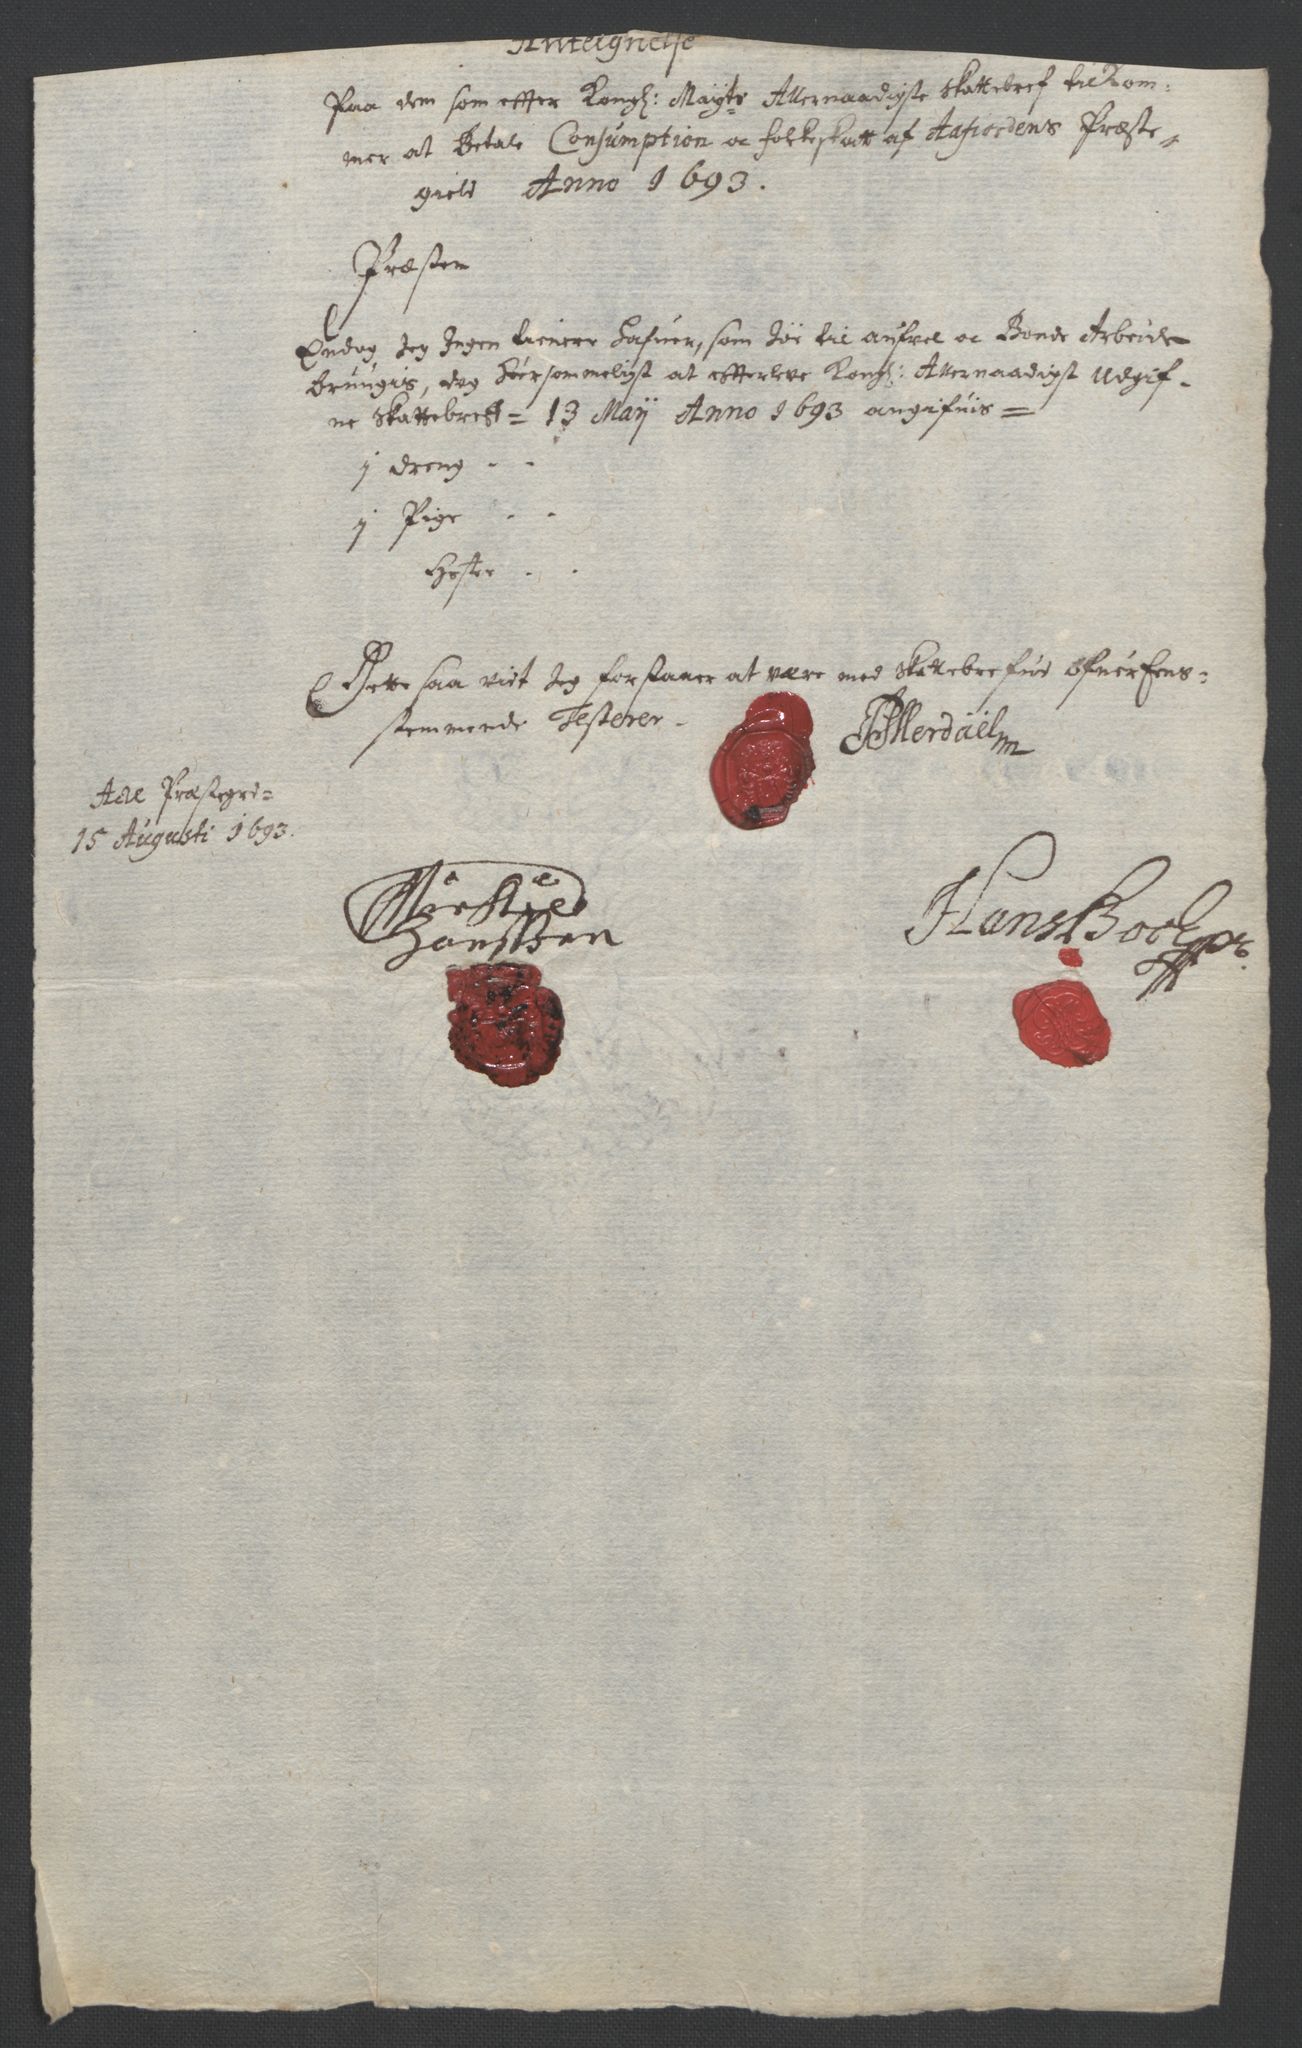 Antegnelse
Paa dem som effter Kongl: Mayts Allernaadigste Skattebref tilkom:
mer at betale Consumption oc folkeskatt af Aafiordens Præste
gield Anno 1693.
Præsten
Endog Jeg Ingen tienere hafuer, som Joe til aufvel oc Bonde Arbeide
bruugis, dog hørsommeligst at effterleve Kongl: Allernaadigst Udgif-
ne Skattebreff = 13 Maÿ Anno 1693 angifuis =
1 dreng - -
1 Pige - -
Hester - -
Dette saa vidt Jeg forstaaer at være med Skattebrefued Ofuer Eens:
stemmende Testerer -
Aae Præstegrd=
15 Augusti 1693.
Hansøn
Hans Bock